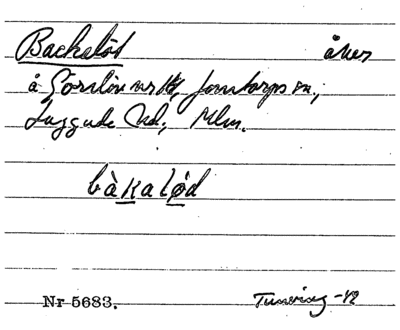 Backalöd åker
å Görslöv nr 14, Jonstorps sn,
Luggude hd, Mlm.
bàkalǫd
Nr 5683. Tuneving -42